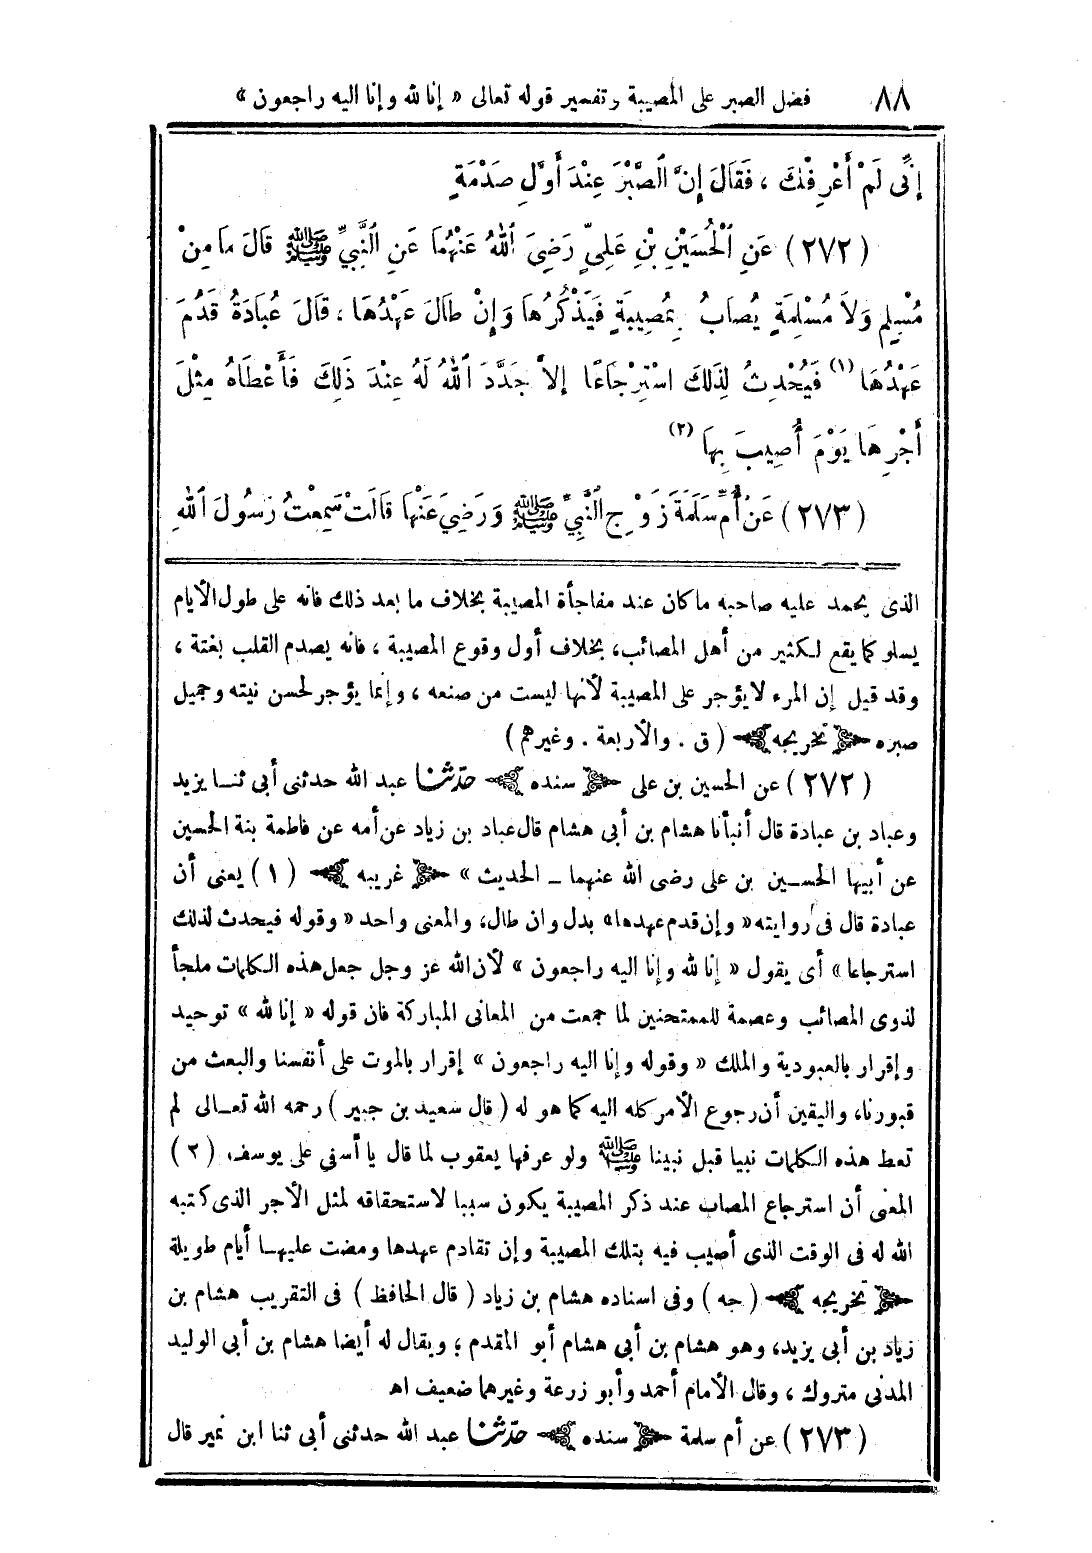 ٨٨ فضل الصبر على المصيبة وتفسير قوله تعالى « إنا لله وإنا اليه راجعون »
إِنِّى لَمْ أَعْرِفْكَ ، فَقَالَ إِنَّ الصَّبْرَ عِنْدَ أَوَّلِ صَدْمَةٍ
(٢٧٢) عَنِ الْحُسَيْنِ بْنِ عَلِىٍّ رَضِىَ اللهُ عَنْهُمَا عَنِ النَّبِىِّ ﷺ قَالَ مَا مِنْ
مُسْلِمٍ وَلاَ مُسْلِمَةٍ يُصَابُ بِمُصِيبَةٍ فَيَذْكُرُهَا وَإِنْ طَالَ عَهْدُهَا ، قَالَ عُبَادَةُ قَدُمَ
عَهْدُهَا (١) فَيُحْدِثُ لِذَلِكَ اسْتِرْجَاعًا إِلاَّ جَدَّدَ اللهُ لَهُ عِنْدَ ذَلِكَ فَأَعْطَاهُ مِثْلَ
أَجْرِهَا يَوْمَ أُصِيبَ بِهَا (٢)
(٢٧٣) عَنْ أُمِّ سَلَمَةَ زَوْجِ النَّبِىِّ ﷺ وَرَضِىَ عَنْهَا قَالَتْ سَمِعْتُ رَسُولَ اللهِ
الذى يحمد عليه صاحبه ما كان عند مفاجأة المصيبة بخلاف ما بعد ذلك فانه على طول الأيام
يسلو كما يقع لكثير من أهل المصائب، بخلاف أول وقوع المصيبة ، فانه يصدم القلب بغتة ،
وقد قيل إن المرء لا يؤجر على المصيبة لأنها ليست من صنعه ، وإنما يؤجر لحسن نيته وجميل
صبره ﴿ تخريجه ﴾ ( ق . والأربعة . وغيرهم )
(٢٧٢) عن الحسين بن على ﴿ سنده ﴾ حدّثنا عبد الله حدثنى أبى ثنا يزيد
وعباد بن عبادة قال أنبأنا هشام بن أبى هشام قال عباد بن زياد عن أمه عن فاطمة بنة الحسين
عن أبيها الحسين بن على رضى الله عنهما ــ الحديث » ﴿ غريبه ﴾ (١) يعنى أن
عبادة قال فى روايته « وإن قدم عهدها» بدل وان طال، والمعنى واحد « وقوله فيحدث لذلك
استرجاعا » أى يقول « إنا لله وإنا اليه راجعون » لأن الله عز وجل جعل هذه الكلمات ملجأ
لذوى المصائب وعصمة للممتحنين لما جمعت من المعانى المباركة فان قوله « إنا لله » توحيد
وإقرار بالعبودية والملك « وقوله وإنا اليه راجعون » إقرار بالموت على أنفسنا والبعث من
قبورنا، واليقين أن رجوع الأمر كله اليه كما هو له ( قال سعيد بن جبير ) رحمه الله تعالى لم
تعط هذه الكلمات نبيا قبل نبينا ﷺ ولو عرفها يعقوب لما قال يا أسفى على يوسف، (٢)
المعنى أن استرجاع المصاب عند ذكر المصيبة يكون سببا لاستحقاقه لمثل الأجر الذى كتبه
الله له فى الوقت الذى أصيب فيه بتلك المصيبة وإن تقادم عهدها ومضت عليها أيام طويلة
﴿ تخريجه ﴾ ( جه ) وفى اسناده هشام بن زياد ( قال الحافظ ) فى التقريب هشام بن
زياد بن أبى يزيد، وهو هشام بن أبى هشام أبو المقدم ؛ ويقال له أيضا هشام بن أبى الوليد
المدنى متروك ، وقال الأمام أحمد وأبو زرعة وغيرهما ضعيف اهـ
(٢٧٣) عن أم سلمة ﴿ سنده ﴾ حدّثنا عبد الله حدثنى أبى ثنا ابن نمير قال